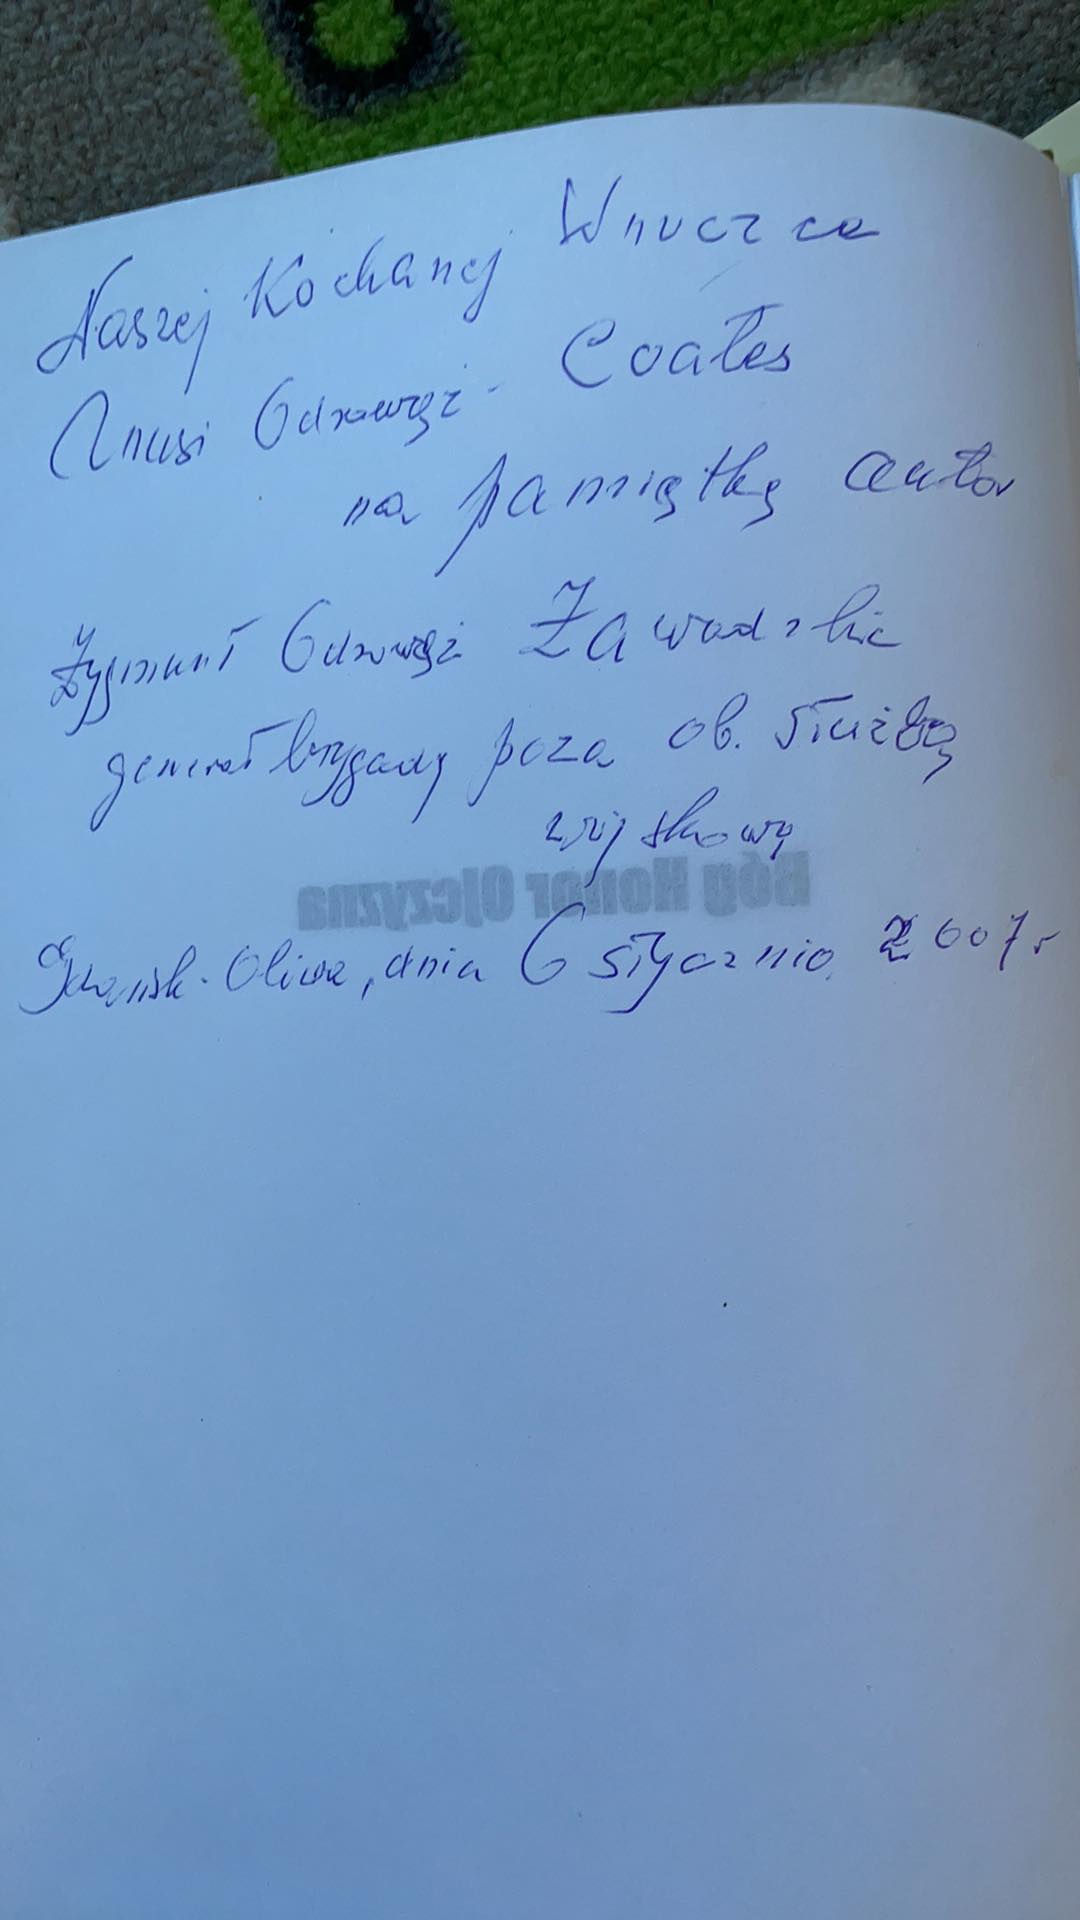 Naszej Kochanej Wnuczce
Anusi Odrowąż - Coates
na pamiątkę autor
Zygmunt Odrowąż Zawadzki
generał brygady poza ob. służbą
wojskową
Bóg Honor Ojczyzna
Gdańsk-Oliwa, dnia 6 stycznia 2007 r